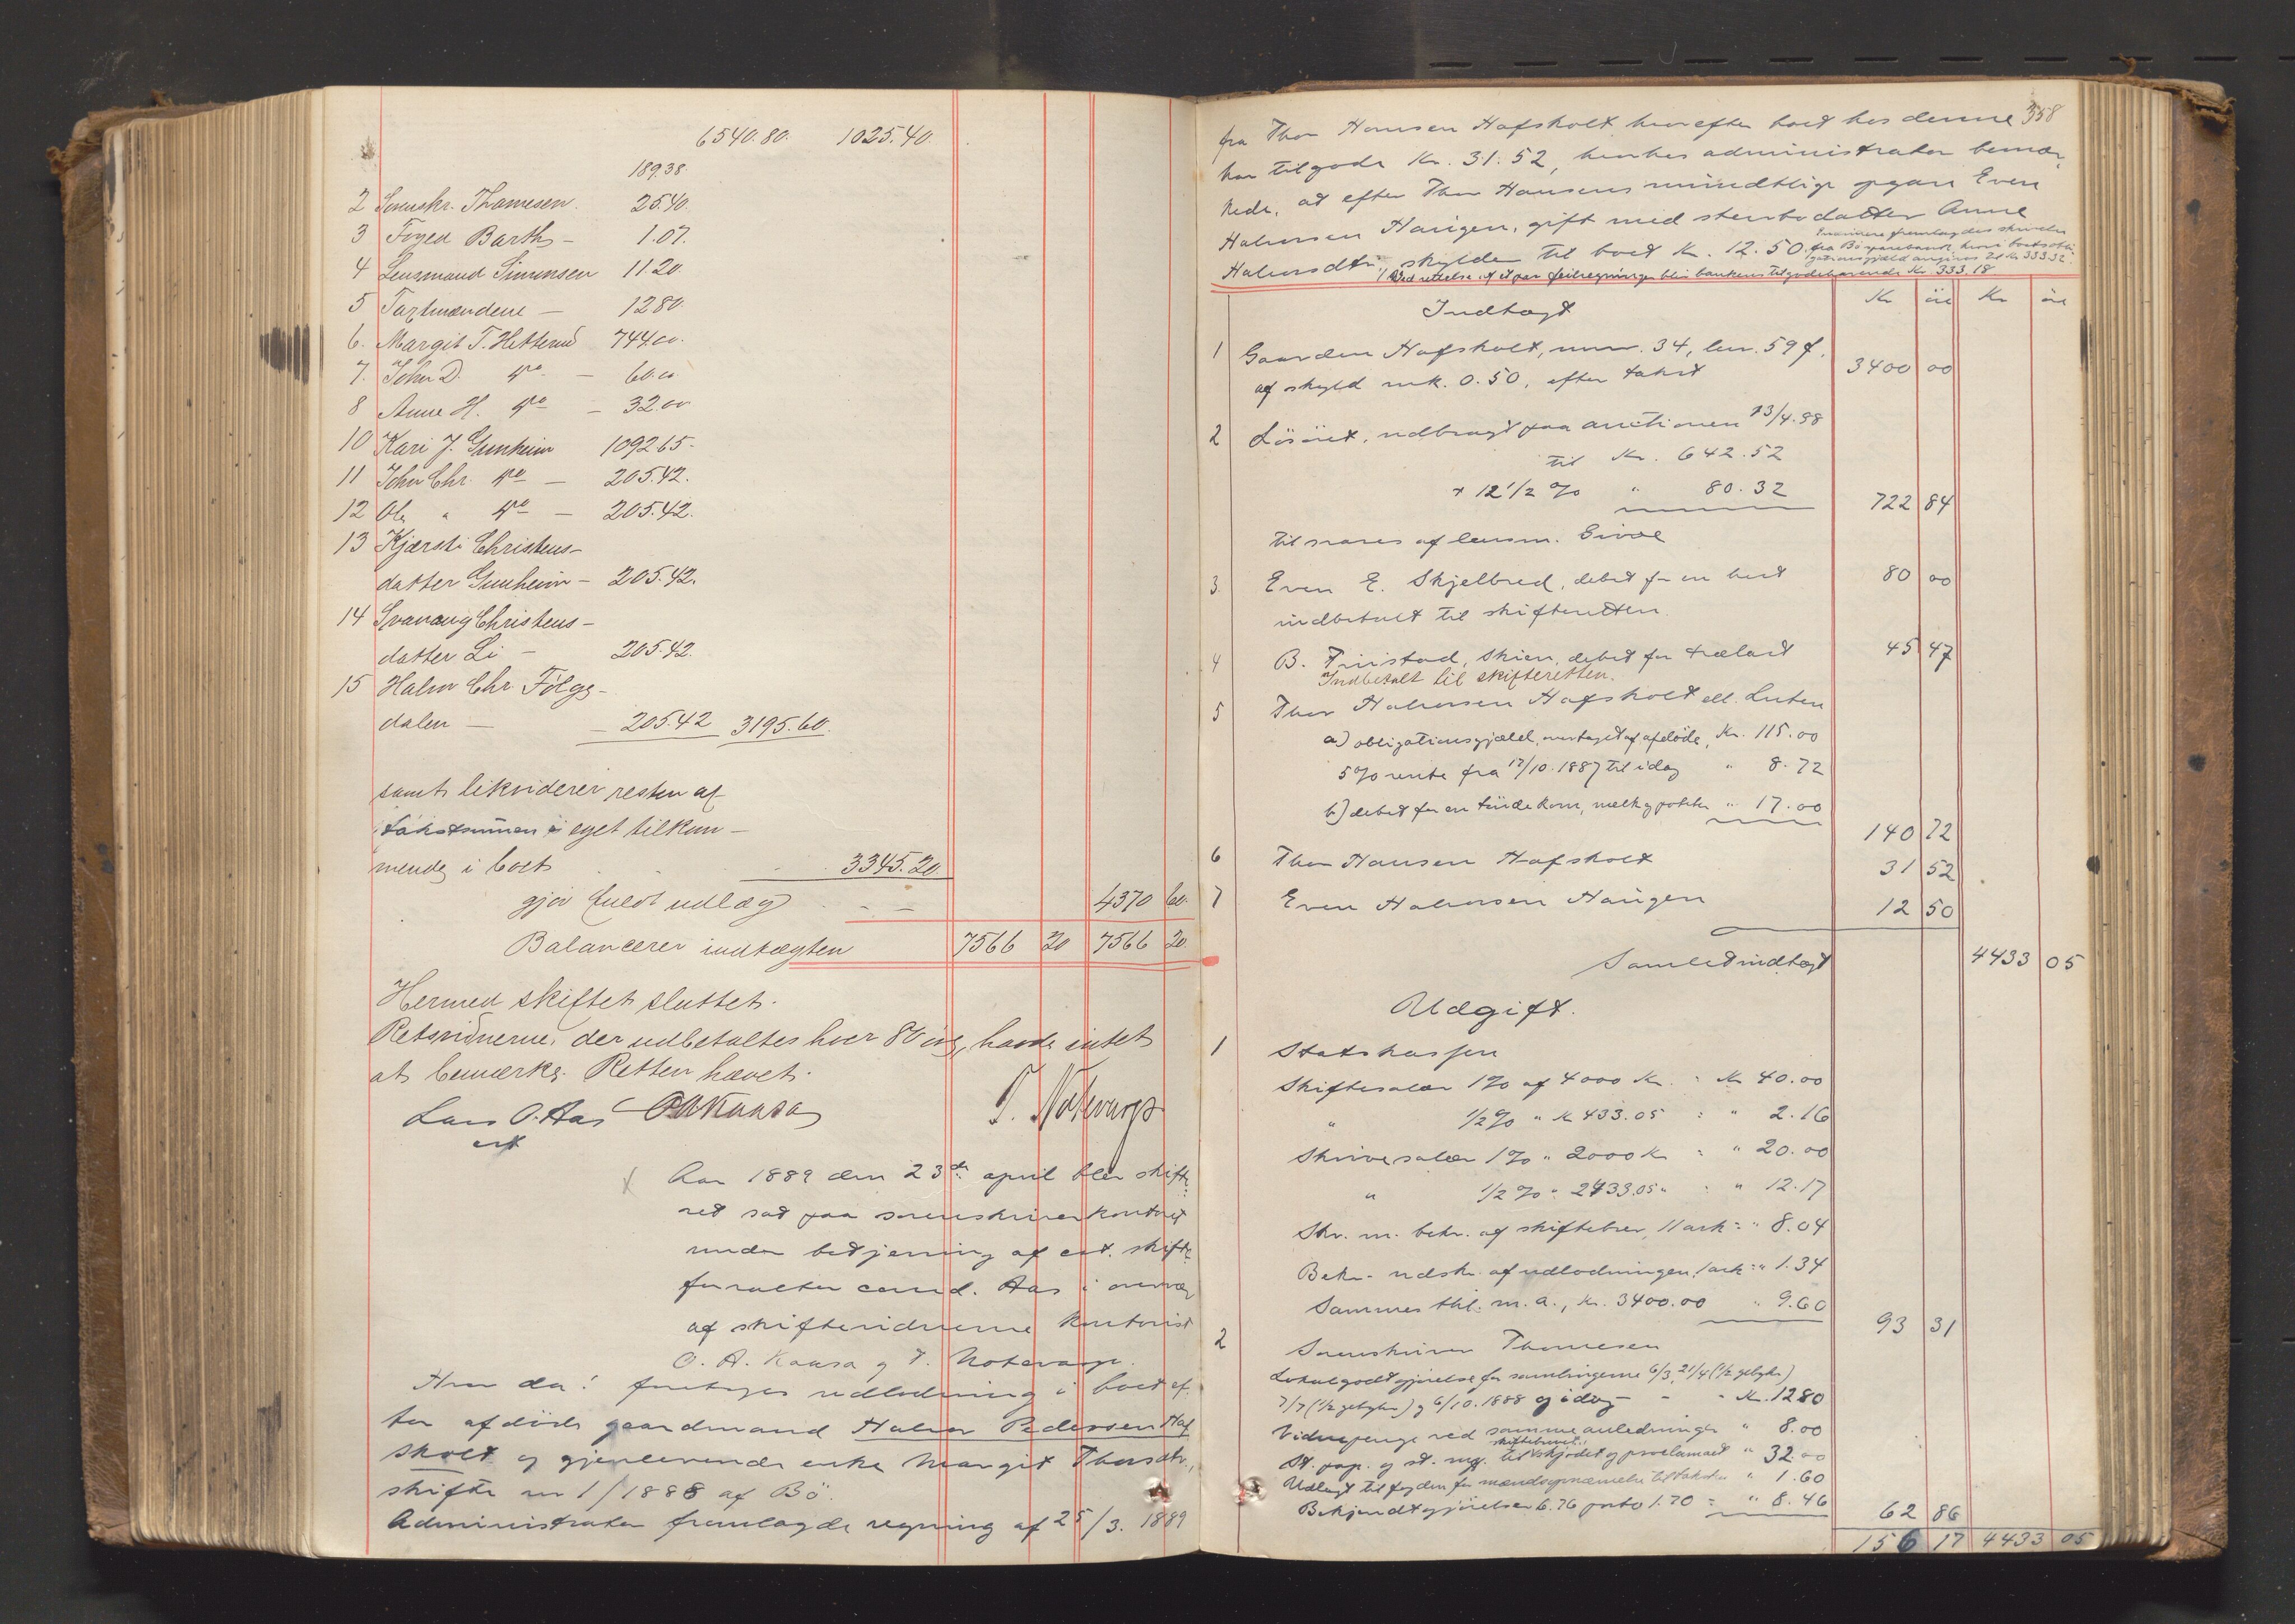 6540.80. 1025.40.
189.38.
2 Sorenskr. Thomesen. 25.40.
3 Foged Barth – 1.07.
4 Lensmand Simonsen 11.20.
5 Taxtmændene – 12.80.
6. Margit T. Hetterud 744.00.
7. John D. do – 60.00
8 Anne H. do – 32.00
10 Kari J. Gunheim 1092.65.
11 John Chr. do – 205.42.
12 Ole " do – 205.42.
13 Kjærsti Christens–
datter Gunheim – 205.42.
14 Svanaug Christens–
datter Li – 205.42.
15 Halvor Chr. Følge–
dalen – – 205.42 3195.60.
samt likviderer resten af
takstsummen i eget tilkom–
mende i boet 3345.20
gjør fuldt udlæg – – 4370 60.
Balancerer indtægten 7566 20 7566 20.
Hermed skiftet sluttet.
Retsvidnerne, der udbetaltes hver 80 øre, havde intet
at bemærke. Retten hævet.
Lars O. Aas OAKaasa T. Notevarp
cst
Aar 1889 den 23de april blev skifte
ret sat paa sorenskriverkontoret
under betjening af cst. skifte
forvalter cand. Aas i overvær
af skiftevidnerne kontorist
O. A. Kaasa og T. Notevarp.
Hvor da: foretoges udlodning i boet ef
ter afdøde gaardmand Halvor Pedersen Haf
skolt og gjenlevende enke Margit Thorsdtr.,
skifte nr 1/1888 af Bö.
Administrator fremlagde regning af 25/3. 1889
358
fra Thor Hansen Hafskolt hvorefter boet hos denne
har tilgode Kr. 31.52, hvorhos administrator bemær
kede, at efter Thor Hansens mundtlige opgave Even
Halvorsen Haugen, gift med sterbodatter Anne
Halvorsdtr. skylder til boet Kr. 12.50.
Endvidere fremlagdes skrivelse
fra Bö sparebank, hvori boets obli
gationsgjæld angives til Kr 333.32
1) Ved rettelse af et par feilregninger blir bankens tilgodehavende Kr 333.18
Indtægt Kr öre Kr öre
1 Gaarden Hafskolt, mnr. 34, lnr. 59 f,
af skyld mk. 0.50, efter takst 3400 00
2 Lösöret, udbragt paa auctionen 13/4.88
til Kr. 642.52
+ 12 1/2 % " 80.32 722 84
til svares af lensm. Sivle
3. Even E. Skjelbred, debet for en hest 80 00
indbetalt til skifteretten.
4 B. Friistad, Skien, debet for trælast 45 47
Indbetalt til skifteretten.
5 Thor Halvorsen Hafskolt ell. Luten
a) obligationsgjæld, overtaget af afdöde, Kr. 115.00
5% rente fra 17/10.1887 til idag " 8.72
b) debet for en tönde korn, melk og poteter " 17.00 140 72
6 Thor Hansen Hafskolt 31 52
7 Even Halvorsen Haugen 12 50
Samlet indtægt 4433 05
Udgift.
1 Statskassen
Skiftesalær 1% af 4000 Kr. = Kr 40.00
" 1/2% " Kr 433.05 = " 2.16
Skrivesalær 1% " 2000 Kr = " 20.00
" 1/2% " 2433.05 " = " 12.17
Skr. m. bekr. af skiftebrev, 11 ark = " 8.04
Bekr. udskr. af udlodningen, 1 ark = " 1.34
Sammes thl. m. a., Kr. 3400.00 " 9.60 93 31
2 Sorenskriver Thomesen
Lokalgodtgjörelse for samlingerne 6/3, 21/4 (1/2 gebyhr)
7/7 (1/2 gebyhr) og 6/10.1888 og idag – – Kr. 12.80
Vidnepenge ved samme anledninger " 8.00
St. pap. og st. mg. til skiftebrevet, skjödet og proclamaet " 32.00
Udlagt til fogden for mændsopnævnelse til taksten " 1.60
Bekjendtgjörelser 6.76 porto 1.70 = " 8.46 62 86
156 17 4433 05